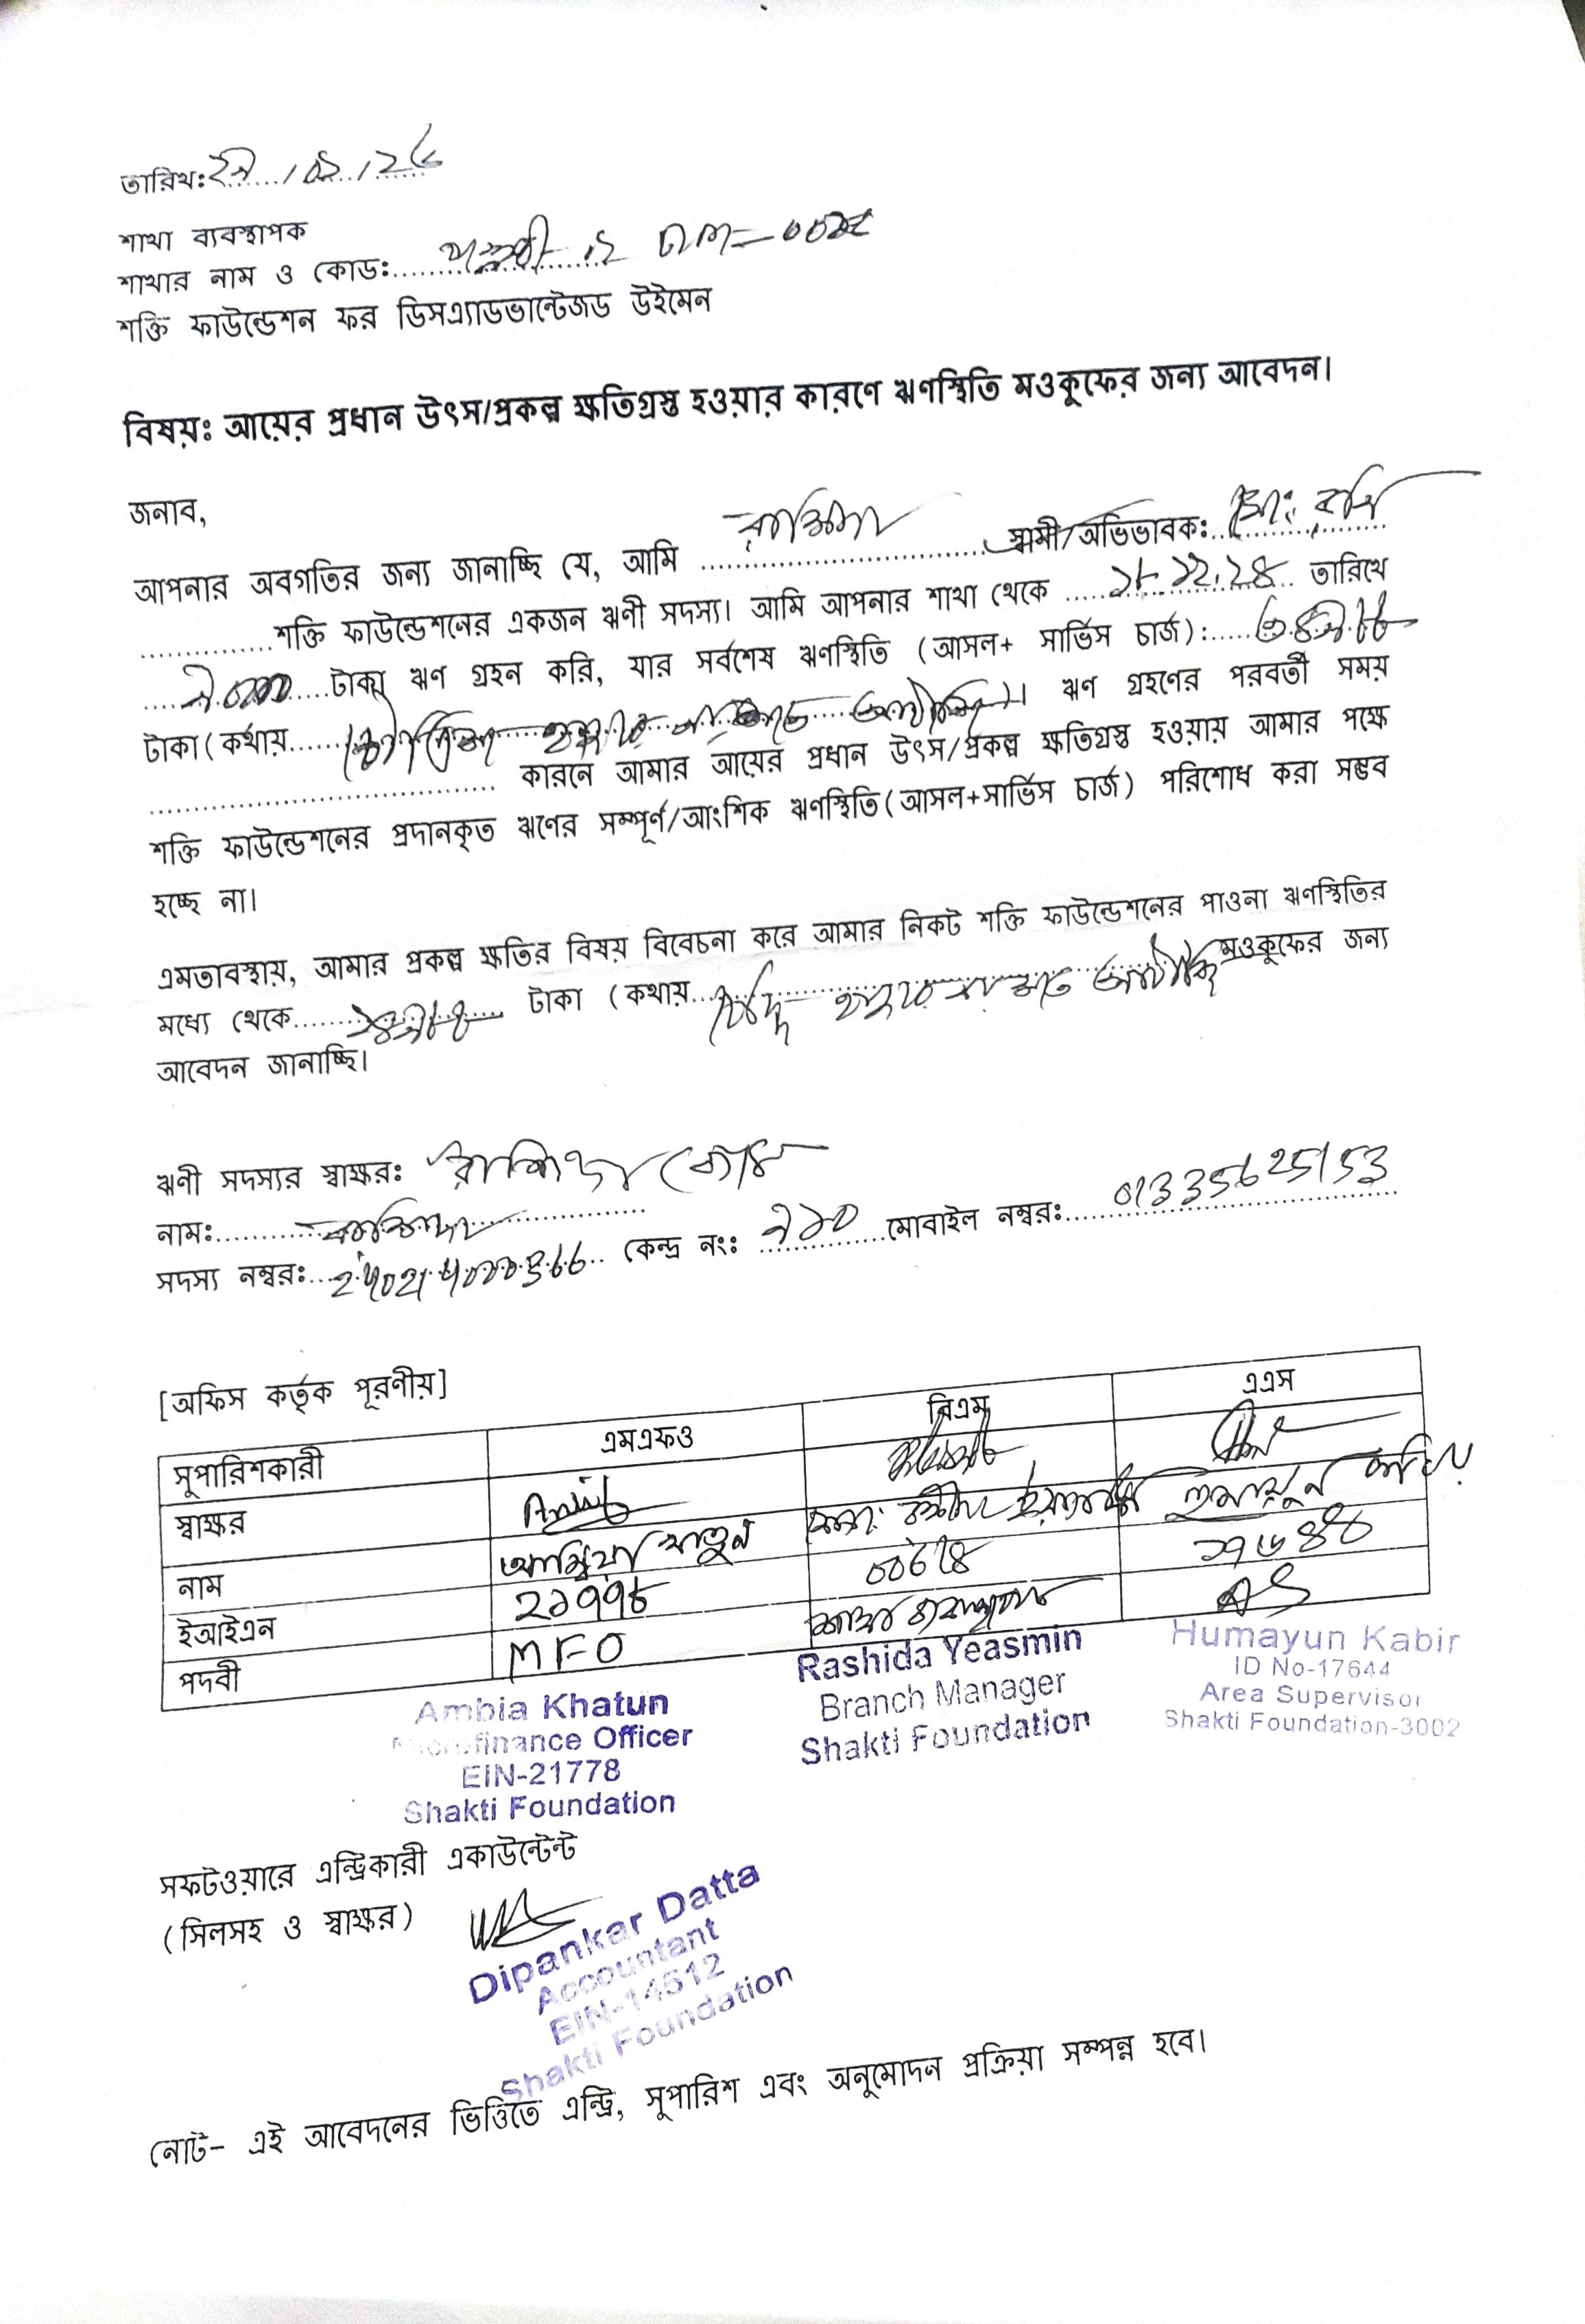 তারিখঃ
শাখা ব্যবস্থাপক
শাখার নাম ও কোডঃ
শক্তি ফাউন্ডেশন ফর ডিসএ্যাডভান্টেজড উইমেন
বিষয়ঃ আয়ের প্রধান উৎস/প্রকল্প ক্ষতিগ্রস্ত হওয়ার কারণে ঋণস্থিতি মওকুফের জন্য আবেদন।
জনাব,
আপনার অবগতির জন্য জানাচ্ছি যে, আমি স্বামী/অভিভাবক:
শক্তি ফাউন্ডেশনের একজন ঋণী সদস্য। আমি আপনার শাখা থেকে ১৮.১২.২৪ তারিখে
টাকা ঋণ গ্রহন করি, যার সর্বশেষ ঋণস্থিতি (আসল+ সার্ভিস চার্জ):
টাকা (কথায় ঋণ গ্রহণের পরবর্তী সময়
কারনে আমার আয়ের প্রধান উৎস/প্রকল্প ক্ষতিগ্রস্ত হওয়ায় আমার পক্ষে
শক্তি ফাউন্ডেশনের প্রদানকৃত ঋণের সম্পূর্ণ/আংশিক ঋণস্থিতি(আসল+সার্ভিস চার্জ) পরিশোধ করা সম্ভব
হচ্ছে না।
এমতাবস্থায়, আমার প্রকল্প ক্ষতির বিষয় বিবেচনা করে আমার নিকট শক্তি ফাউন্ডেশনের পাওনা ঋণস্থিতির
মধ্যে থেকে টাকা (কথায় মওকুফের জন্য
আবেদন জানাচ্ছি।
ঋণী সদস্যর স্বাক্ষরঃ
নামঃ
সদস্য নম্বরঃ কেন্দ্র নংঃ ৭১০ মোবাইল নম্বরঃ 01335625153
[অফিস কর্তৃক পূরণীয়]
সুপারিশকারী এমএফও বিএম এএস
স্বাক্ষর
নাম আম্বিয়া খাতুন হুমায়ুন কবির
ইআইএন ২১৭৭৮ ১৭৬৪৪
পদবী MFO শাখা ব্যবস্থাপক AS
Ambia Khatun
Microfinance Officer
EIN-21778
Shakti Foundation
Rashida Yeasmin
Branch Manager
Shakti Foundation
Humayun Kabir
ID No-17644
Area Supervisor
Shakti Foundation-3002
সফটওয়ারে এন্ট্রিকারী একাউন্টেন্ট
(সিলসহ ও স্বাক্ষর)
Dipankar Datta
Accountant
EIN-14512
Shakti Foundation
নোট- এই আবেদনের ভিত্তিতে এন্ট্রি, সুপারিশ এবং অনুমোদন প্রক্রিয়া সম্পন্ন হবে।